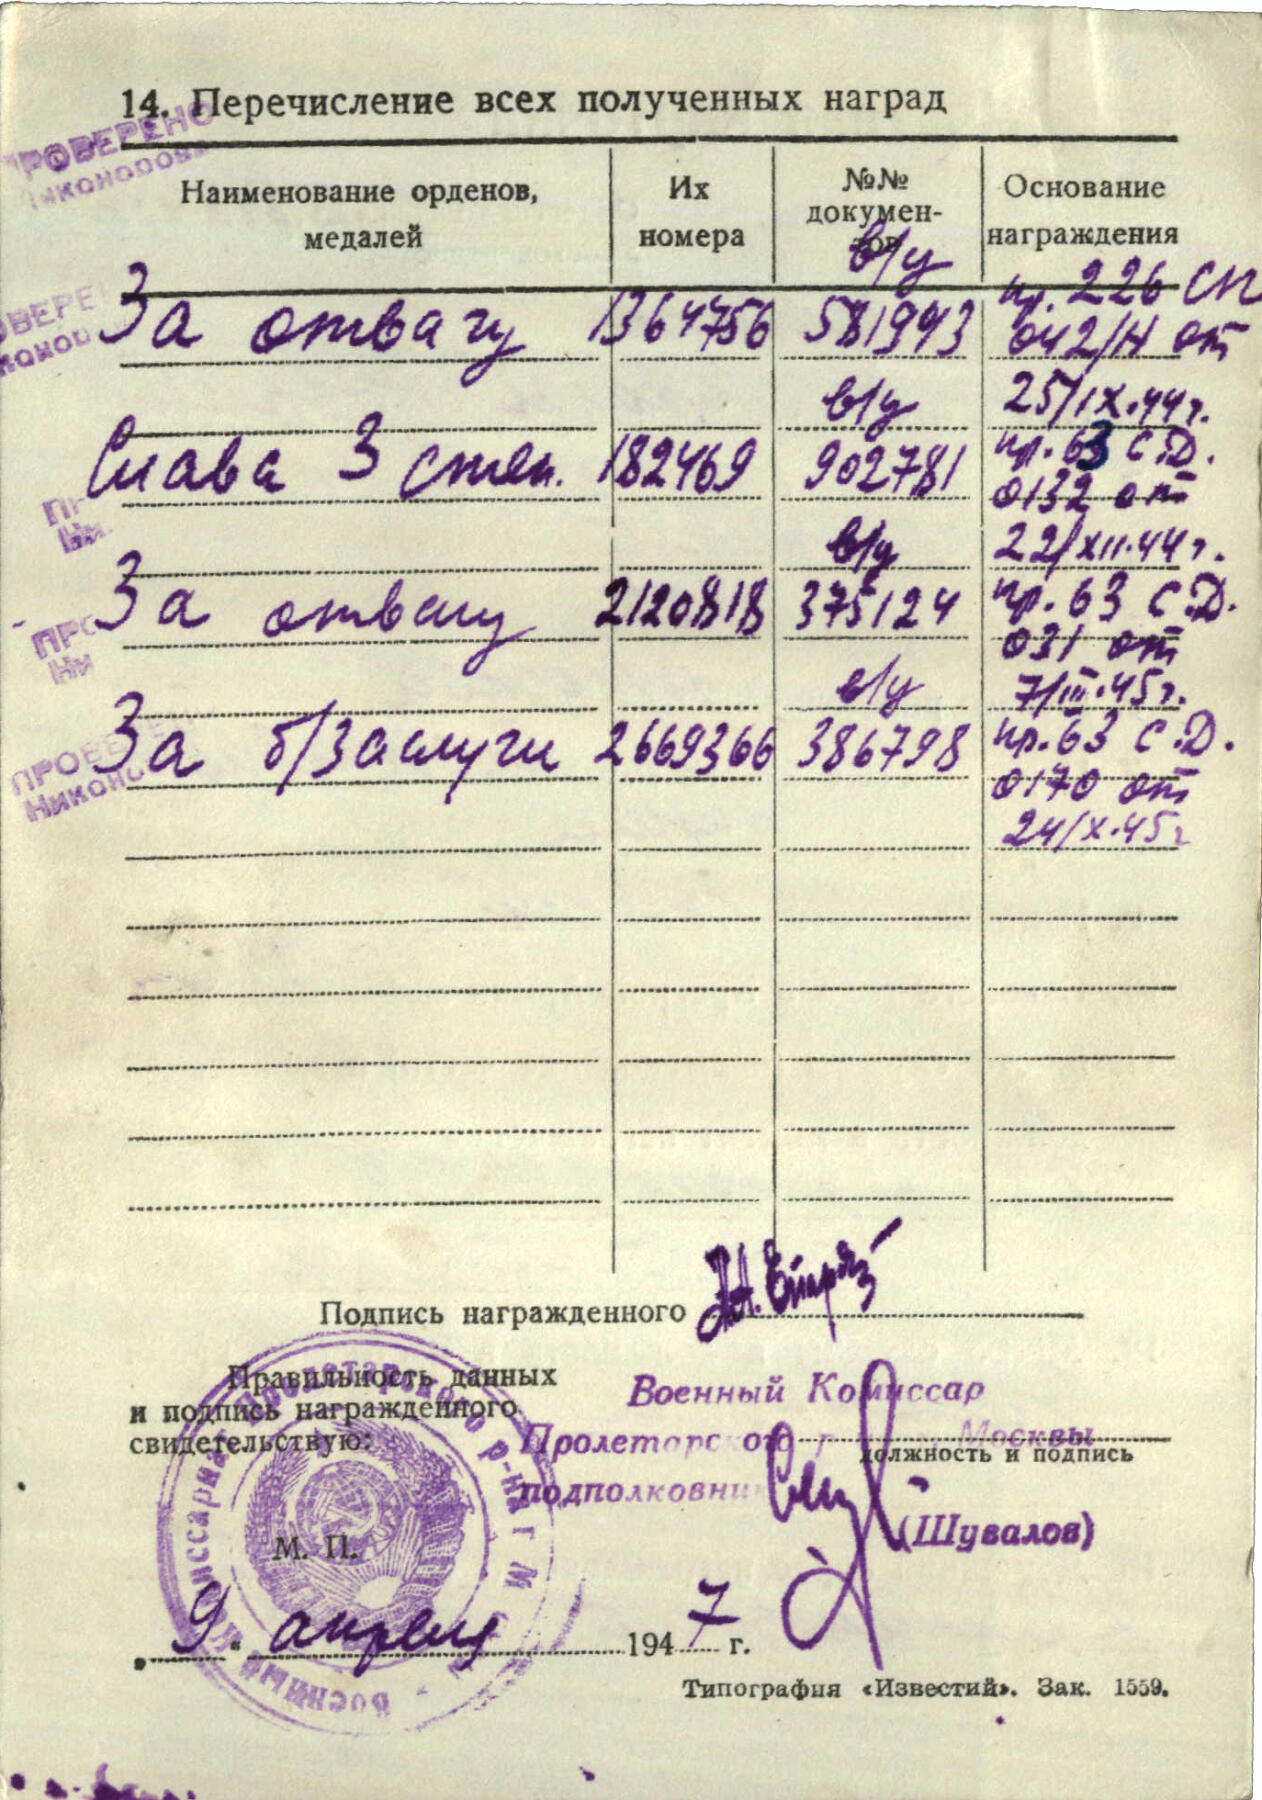 14. Перечисление всех полученных наград
ПРОВЕРЕНО
Наименование орденов,
медалей
Их
номера
№№
докумен-
тов
Основание
награждения
За отвагу 1364756 в/у 581943 пр. 226 СП
042/Н от
25/IX.44г.
Слава 3 степ. 182469 в/у 902781 пр. 63 С.Д.
0132 от
22/XII.44г.
За отвагу 2120818 в/у 375124 пр. 63 С.Д.
031 от
7/III.45г.
За б/заслуги 2669366 в/у 386798 пр. 63 С.Д.
0170 от
24/X.45г
Подпись награжденного
Правильность данных
и подпись награжденного
свидетельствую:
Военный Комиссар
Пролетарского Москвы
должность и подпись
подполковник
(Шувалов)
М. П.
9 апреля 1947 г.
Типография «Известий». Зак. 1559.